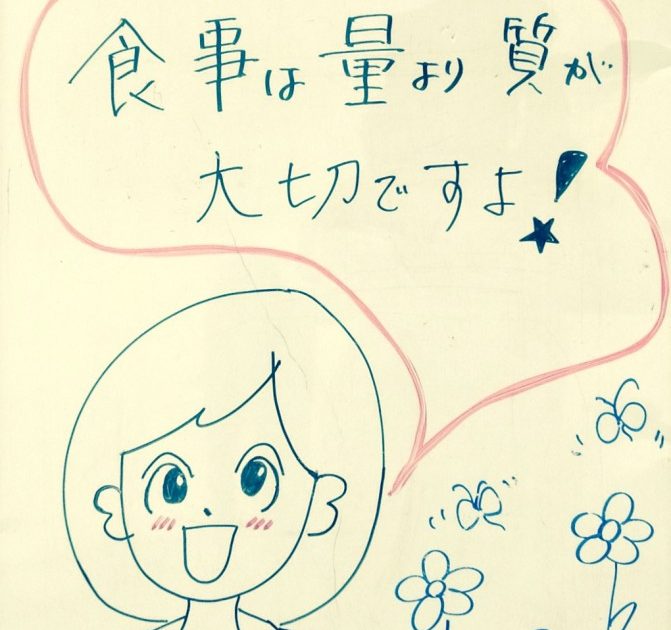 食事は量より質が
大切ですよ!